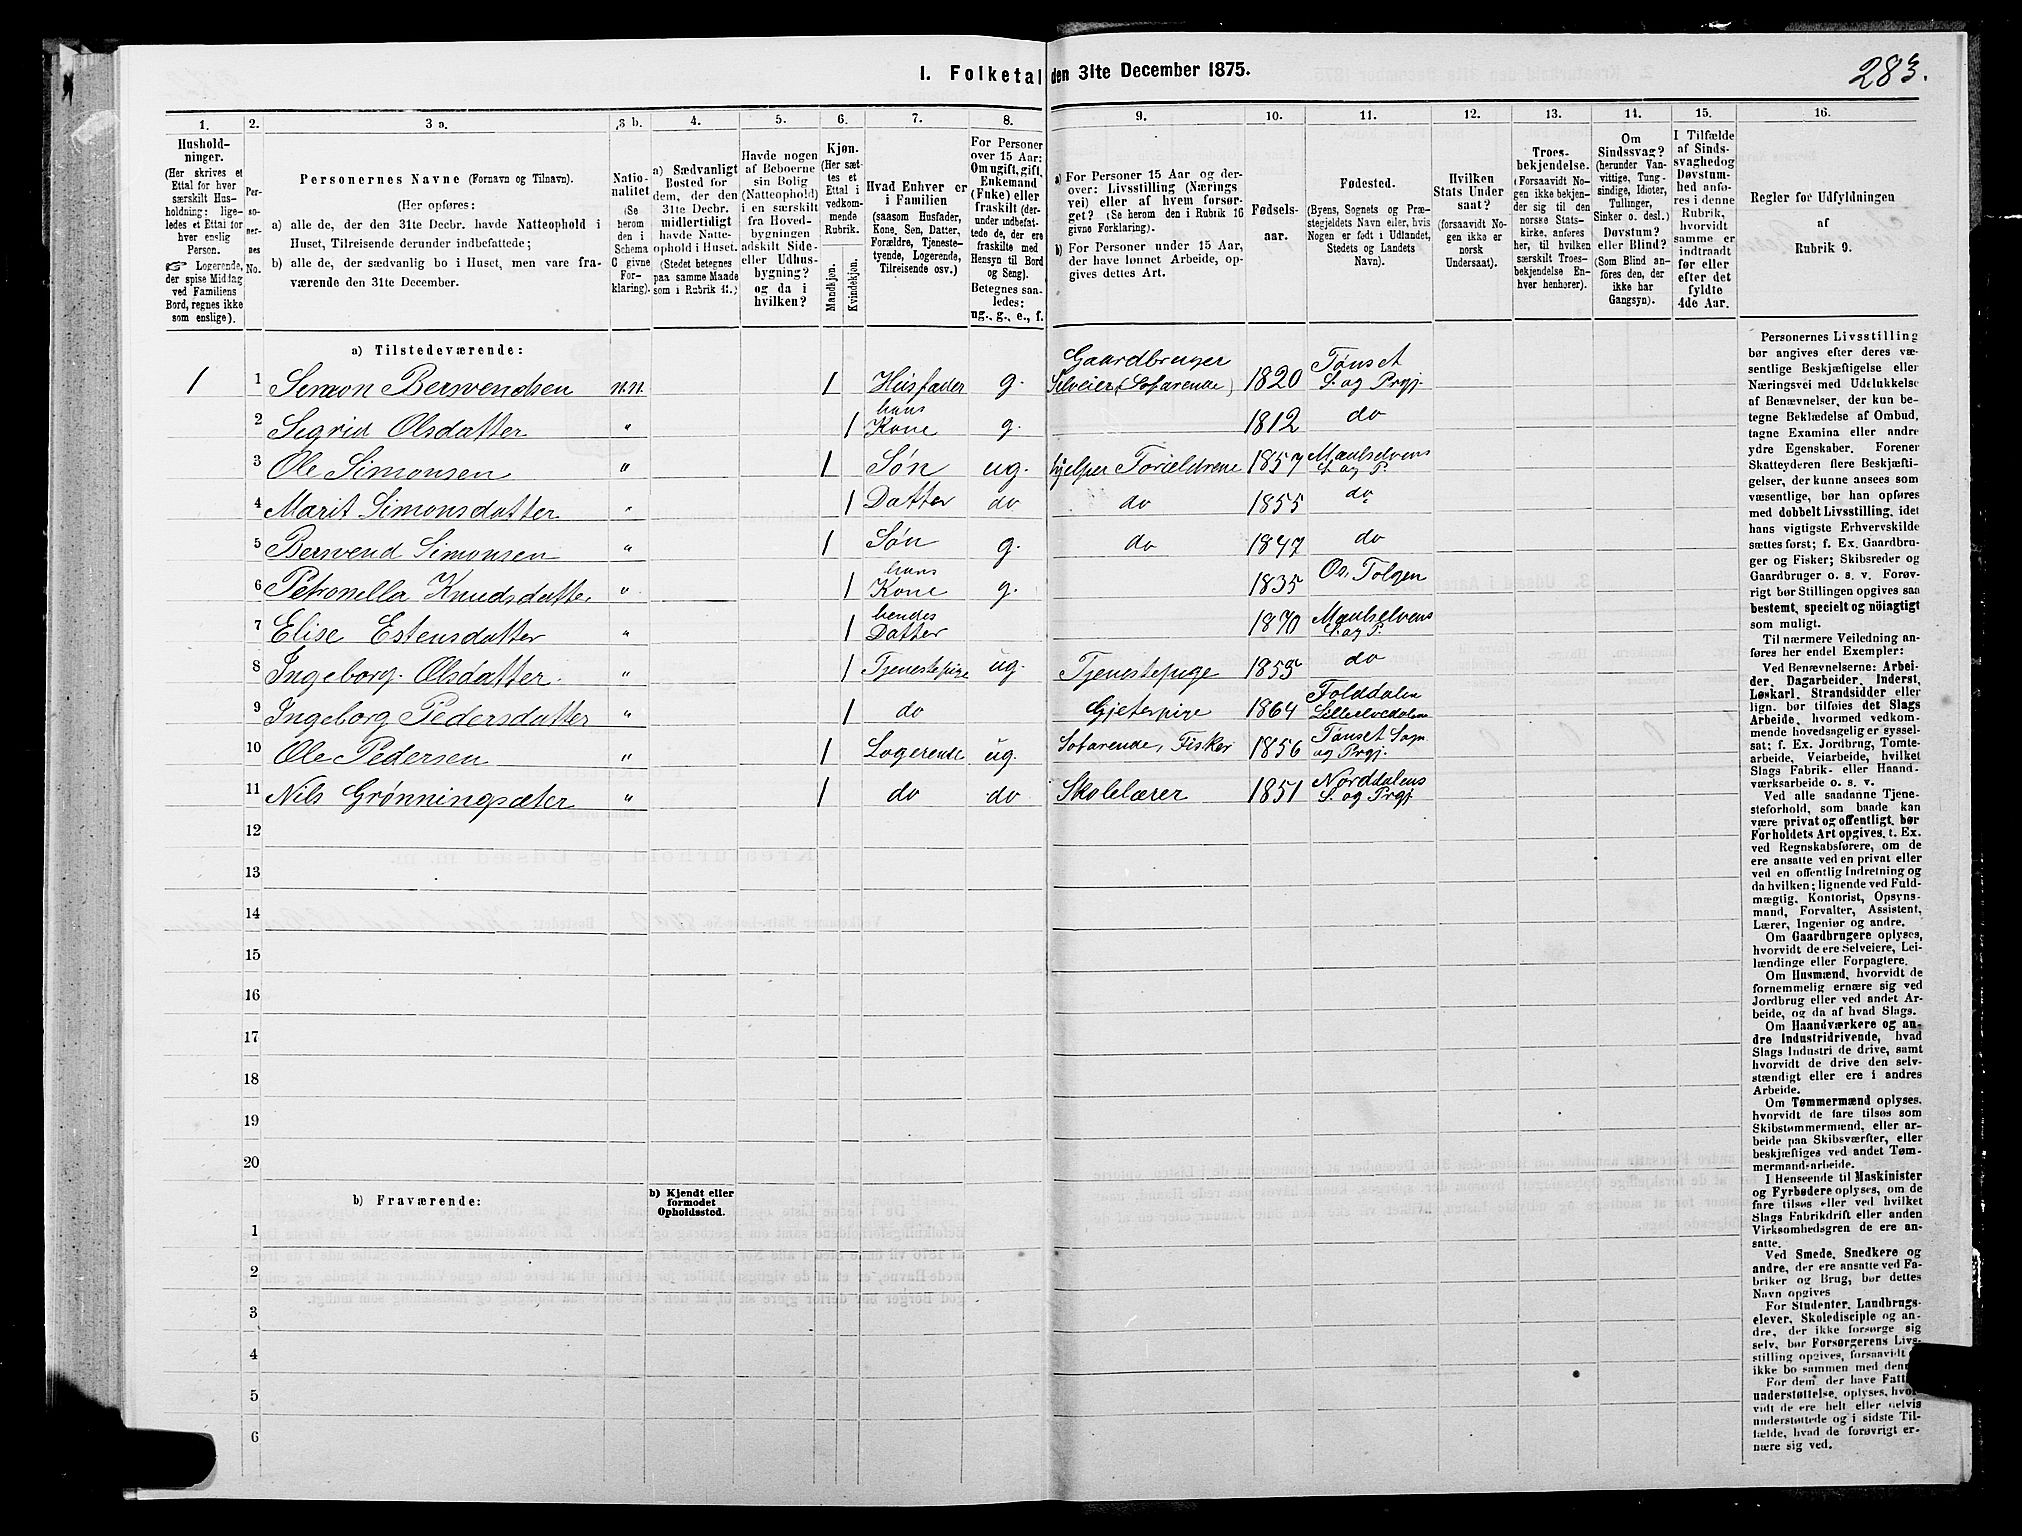 I. Folketal den 31te December 1875.
283.
1.
Husholdninger.
(Her skrives et
Ettal for hver
særskilt Husholdning; ligeledes
et Ettal for
hver enslig
Person.
☞ Logerende,
der spise Middag
ved Familiens
Bord, regnes ikke
som enslige).
2.
Personernes
No.
3 a.
Personernes Navne (Fornavn og Tilnavn).
(Her opføres:
a) alle de, der den 31te Decbr. havde Natteophold i
Huset, Tilreisende derunder indbefattede;
b) alle de, der sædvanlig bo i Huset, men vare fraværende
den 31te December.
3 b.
Nationalitet
(Se
herom
den i
Schema
C givne
Forklaring).
4.
a) Sædvanligt
Bosted for
dem, der den
31te Decbr.
midlertidigt
havde Natteophold
i Huset.
(Stedet betegnes
paa samme Maade
som i Rubrik 11.)
5.
Havde nogen
af Beboerne
sin Bolig
(Natteophold)
i en særskilt
fra Hovedbygningen
adskilt Side-
eller Udhusbygning?
og da i
hvilken?
6.
Kjøn.
(Her sættes
et
Ettal i
vedkommende
Rubrik.
Mandkjøn.
Kvindekjøn.
7.
Hvad Enhver er
i Familien
(saasom Husfader,
Kone, Søn, Datter,
Forældre, Tjenestetyende,
Logerende,
Tilreisende osv.)
8.
For Personer
over 15 Aar:
Om ugift, gift,
Enkemand
(Enke) eller
fraskilt (derunder
indbefattede
de, der ere
fraskilte med
Hensyn til Bord
og Seng).
Betegnes saaledes:
ug., g., e., f.
9.
a) For Personer 15 Aar og derover:
Livsstilling (Næringsvei)
eller af hvem forsørget?
(Se herom den i Rubrik 16
givne Forklaring).
b) For Personer under 15 Aar,
der have lønnet Arbeide, opgives
dettes Art.
10.
Fødselsaar.
11.
Fødested.
(Byens, Sognets og Præstegjeldets
Navn eller, hvis
Nogen er født i Udlandet,
Stedets og Landets
Navn).
12.
Hvilken
Stats Undersaat?
(forsaavidt Nogen
ikke er
norsk
Undersaat).
13.
Troesbekjendelse.
(Forsaavidt Nogen
ikke bekjender
sig til den
norske Statskirke,
anføres
her, til hvilken
særskilt Troesbekjendelse
Enhver
henhører).
14.
Om
Sindssvag?
(herunder Vanvittige,
Tungsindige,
Idioter,
Tullinger,
Sinker o. desl.)
Døvstum?
eller Blind?
(Som Blind anføres
den, der
ikke har
Gangsyn).
15.
I Tilfælde
af Sindssvaghed
og
Døvstumhed
anføres
i denne
Rubrik,
hvorvidt
samme er
indtraadt
før eller
efter det
fyldte
4de Aar.
16.
Regler for Udfyldningen
af
Rubrik 9.
a) Tilstedeværende:
1 1 Simon Bersvendsen n.n. 1 Husfader g. Gaardbruger Selveier (Sofarende) 1820 Tønset S. og Prgj.
2 Sigrid Olsdatter " 1 hans Kone g. 1812 do
3 Ole Simonsen " 1 Søn ug. hjelper Forældrene 1857 Maalselvens S. og P.
4 Marit Simonsdatter " 1 Datter do do 1855 do
5 Bersvend Simonsen " 1 Søn g. do 1847 do
6 Petronella Knudsdatter " 1 hans Kone g. 1835 Os, Tolgen
7 Elise Estensdatter " 1 hendes Datter 1870 Maalselvens S. og P.
8 Ingeborg Olsdatter " 1 Tjenestepige ug. Tjenestepige 1855 do
9 Ingeborg Pedersdatter " 1 do Gjeterpige 1864 Folddalen Lilleelvedalen
10 Ole Pedersen " 1 Logerende ug. Sofarende, Fisker 1856 Tønset Sogn og Prgj.
11 Nils Grønningsæter " 1 do do Skolelærer 1851 Norddalens S. og Prgj
12
13
14
15
16
17
18
19
20
b) Fraværende:
b) Kjendt eller
formodet
Opholdssted.
1
2
3
4
5
6
Personernes Livsstilling
bør angives efter deres væsentlige
Beskjæftigelse eller
Næringsvei med Udelukkelse
af Benævnelser, der kun betegne
Beklædelse af Ombud,
tagne Examina eller andre
ydre Egenskaber. Forener
Skatteyderen flere Beskjæftigelser,
der kunne ansees som
væsentlige, bør han opføres
med dobbelt Livsstilling, idet
hans vigtigste Erhvervskilde
sættes først; f. Ex. Gaardbruger
og Fisker; Skibsreder og
Gaardbruger o. s. v. Forøvrigt
bør Stillingen opgives saa
bestemt, specielt og nöiagtigt
som muligt.
Til nærmere Veiledning anføres
her endel Exempler:
Ved Benævnelserne: Arbeider,
Dagarbeider, Inderst,
Løskarl, Strandsidder eller
lign. bør tilføies det Slags
Arbeide, hvormed vedkommende
hovedsagelig er sysselsat;
f. Ex. Jordbrug, Tomtearbeide,
Veiarbeide, hvilket
Slags Fabrik- eller Haandværksarbeide
o. s. v.
Ved alle saadanne Tjenesteforhold,
som baade kan
være privat og offentligt, bør
Forholdets Art opgives, t. Ex.
ved Regnskabsførere, om de
ere ansatte ved en privat eller
ved en offentlig Indretning og
da hvilken; lignende ved Fuldmægtig,
Kontorist, Opsynsmand,
Forvalter, Assistent,
Lærer, Ingeniør og andre.
Om Gaardbrugere oplyses,
hvorvidt de ere Selveiere, Leilændinge
eller Forpagtere.
Om Husmænd, hvorvidt de
fornemmelig ernære sig ved
Jordbrug eller ved andet Arbeide,
og da af hvad Slags.
Om Haandværkere og andre
Industridrivende, hvad
Slags Industri de drive, samt
hvorvidt de drive den selvstændigt
eller ere i andres
Arbeide.
Om Tømmermænd oplyses,
hvorvidt de fare tilsøs som
Skibstømmermænd, eller arbeide
paa Skibsværfter, eller
beskjæftiges ved andet Tømmermandsarbeide.
I Henseende til Maskinister
og Fyrbødere oplyses, om de
fare tilsøs eller ved hvilket
Slags Fabrikdrift eller anden
Virksomhedsgren de ere ansatte.
Ved Smede, Snedkere og
andre, der ere ansatte ved Fabriker
og Brug, bør dettes
Navn opgives
For Studenter, Landbrugselever,
Skoledisciple og andre,
der ikke forsørge sig
selv, bør Forsørgerens Livsstilling
opgives, forsaavidt
ikke bo sammen med denne
For dem, der have Fattigunderstøttelse,
oplyses, hvorvidt
de ere helt eller delvis
understøttede og i sidste Tilfælde,
hvad de forøvrigt ernære
sig ved.